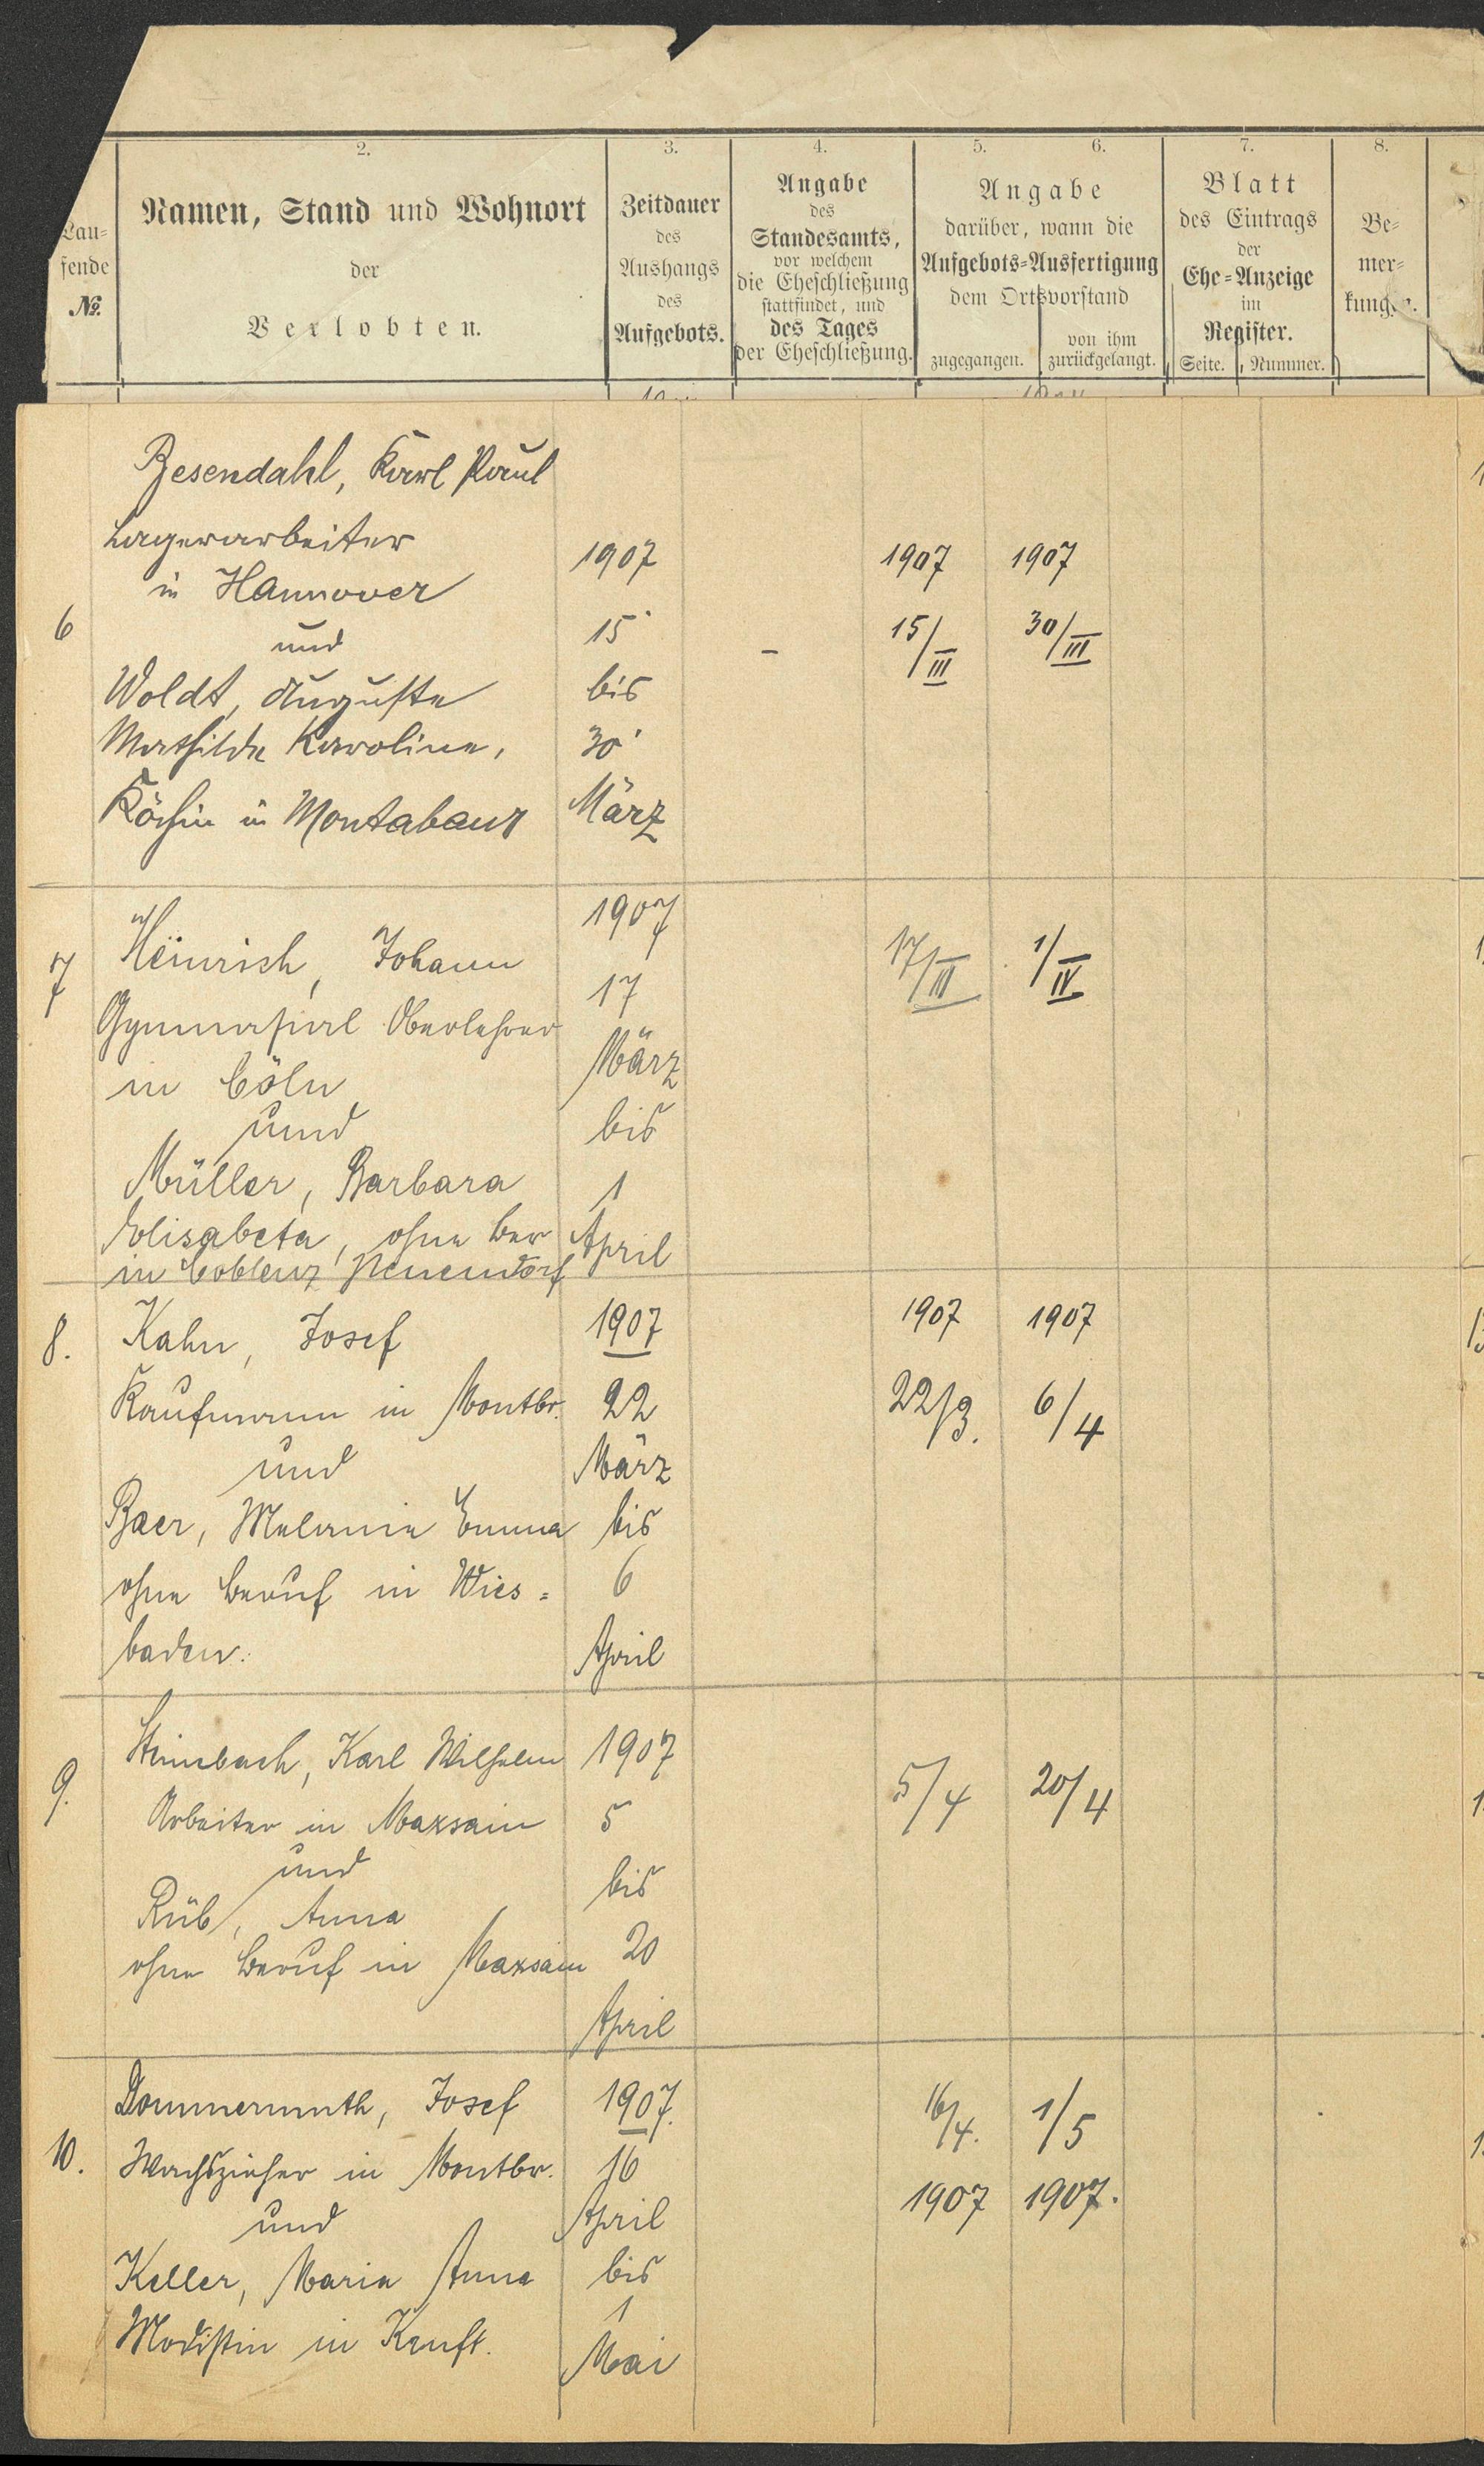 2.
3.
4.
5.
6.
7.
8.
Lau-
fende
№.
Namen, Stand und Wohnort
der
Verlobten.
Zeitdauer
des
Aushangs
des
Aufgebots.
Angabe
des
Standesamts,
vor welchem
die Eheschließung
stattfindet, und
des Tages
der Eheschließung.
Angabe
darüber, wann die
Aufgebots-Ausfertigung
dem Ortsvorstand
zugegangen.
von ihm
zurückgelangt.
Blatt
des Eintrags
der
Ehe-Anzeige
im
Register.
Seite.
Nummer.
Be-
mer-
kungen.
6
Besendahl, Karl Paul
Lagerarbeiter
in Hannover
und
Woldt, Auguste
Mathilde Karoline,
Köchin in Montabaur
1907
15
bis
30
März
-
1907
15/III
1907
30/III
7
Heinrich, Johann
Gymnasial Oberlehrer
in Cöln
und
Müller, Barbara
Elisabeta, ohne Ber
in Coblenz Neuendorf
1907
17
März
bis
1
April
17/III
1/IV
8.
Kahn, Josef
Kaufmann in Montbr.
und
Baer, Melanie Emma
ohne Beruf in Wies=
baden.
1907
22
März
bis
6
April
1907
22/3.
1907
6/4
9.
Steinbach, Karl Wilhelm
Arbeiter in Maxsain
und
Rüb, Anna
ohne Beruf in Maxsain
1907
5
bis
20
April
5/4
20/4
10.
Dommermuth, Josef
Wachszieher in Montbr.
und
Keller, Maria Anna
Modistin in Kruft.
1907.
16
April
bis
1
Mai
16/4.
1907
1/5
1907.